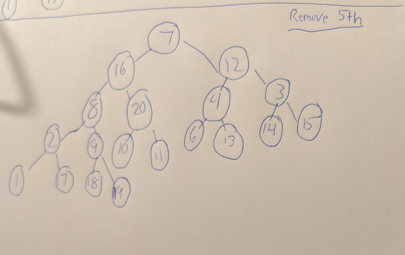 Remove 5th
7
16 12
8 20 4 3
2 9 10 11 6 13 14 15
1 7 18 19